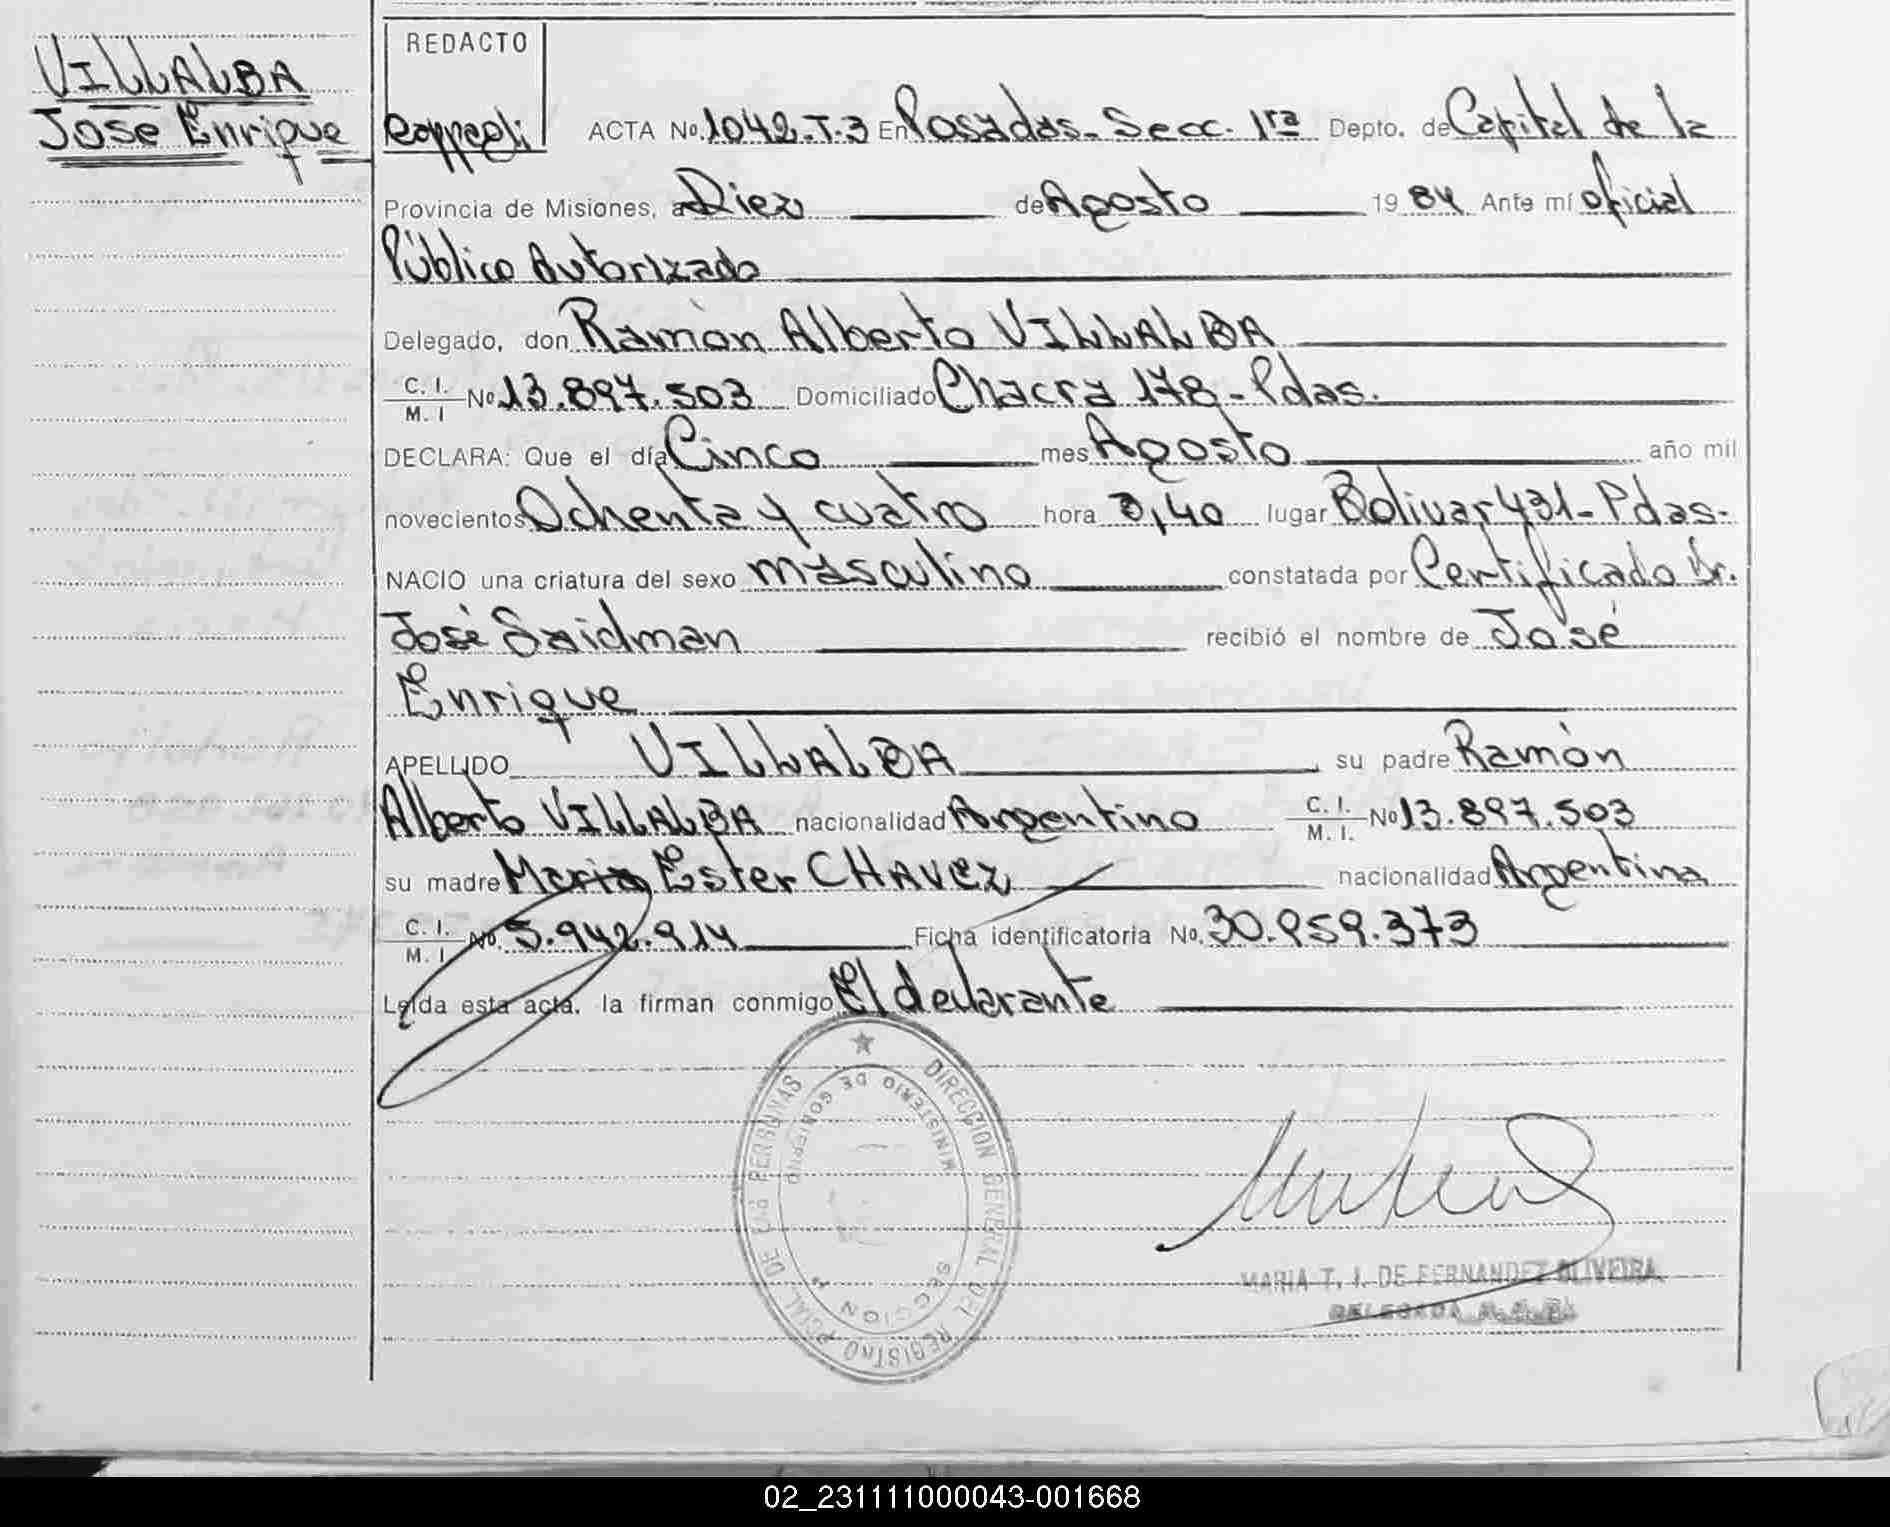 VILLALBA
Jose Enrique
REDACTO
ACTA No. 1042. T. 3 En Posadas - Secc. 1ra Depto. de Capital de la
Provincia de Misiones, a Diez de Agosto 19 84 Ante mí oficial
Público Autorizado
Delegado, don Ramón Alberto VILLALBA
C. I. M. I No 13.897.503 Domiciliado Chacra 178 - Pdas.
DECLARA: Que el día Cinco mes Agosto año mil
novecientos Ochenta y cuatro hora 3,40 lugar Bolivar 431 - Pdas.
NACIO una criatura del sexo masculino constatada por Certificado Dr.
José Saidman recibió el nombre de José
Enrique
APELLIDO VILLALBA su padre Ramón
Alberto VILLALBA nacionalidad Argentino C. I. M. I. No 13.897.503
su madre Maria Ester CHAVEZ nacionalidad Argentina
C. I. M. I. No. 5.942.914 Ficha identificatoria No. 30.959.373
Leída esta acta, la firman conmigo El declarante
DIRECCION GENERAL DEL REGISTRO PCIAL. DE LAS PERSONAS
MINISTERIO DE GOBIERNO
SECCION 1ª
MARIA T. J. DE FERNANDEZ OLIVEIRA
DELEGADA
02_231111000043-001668